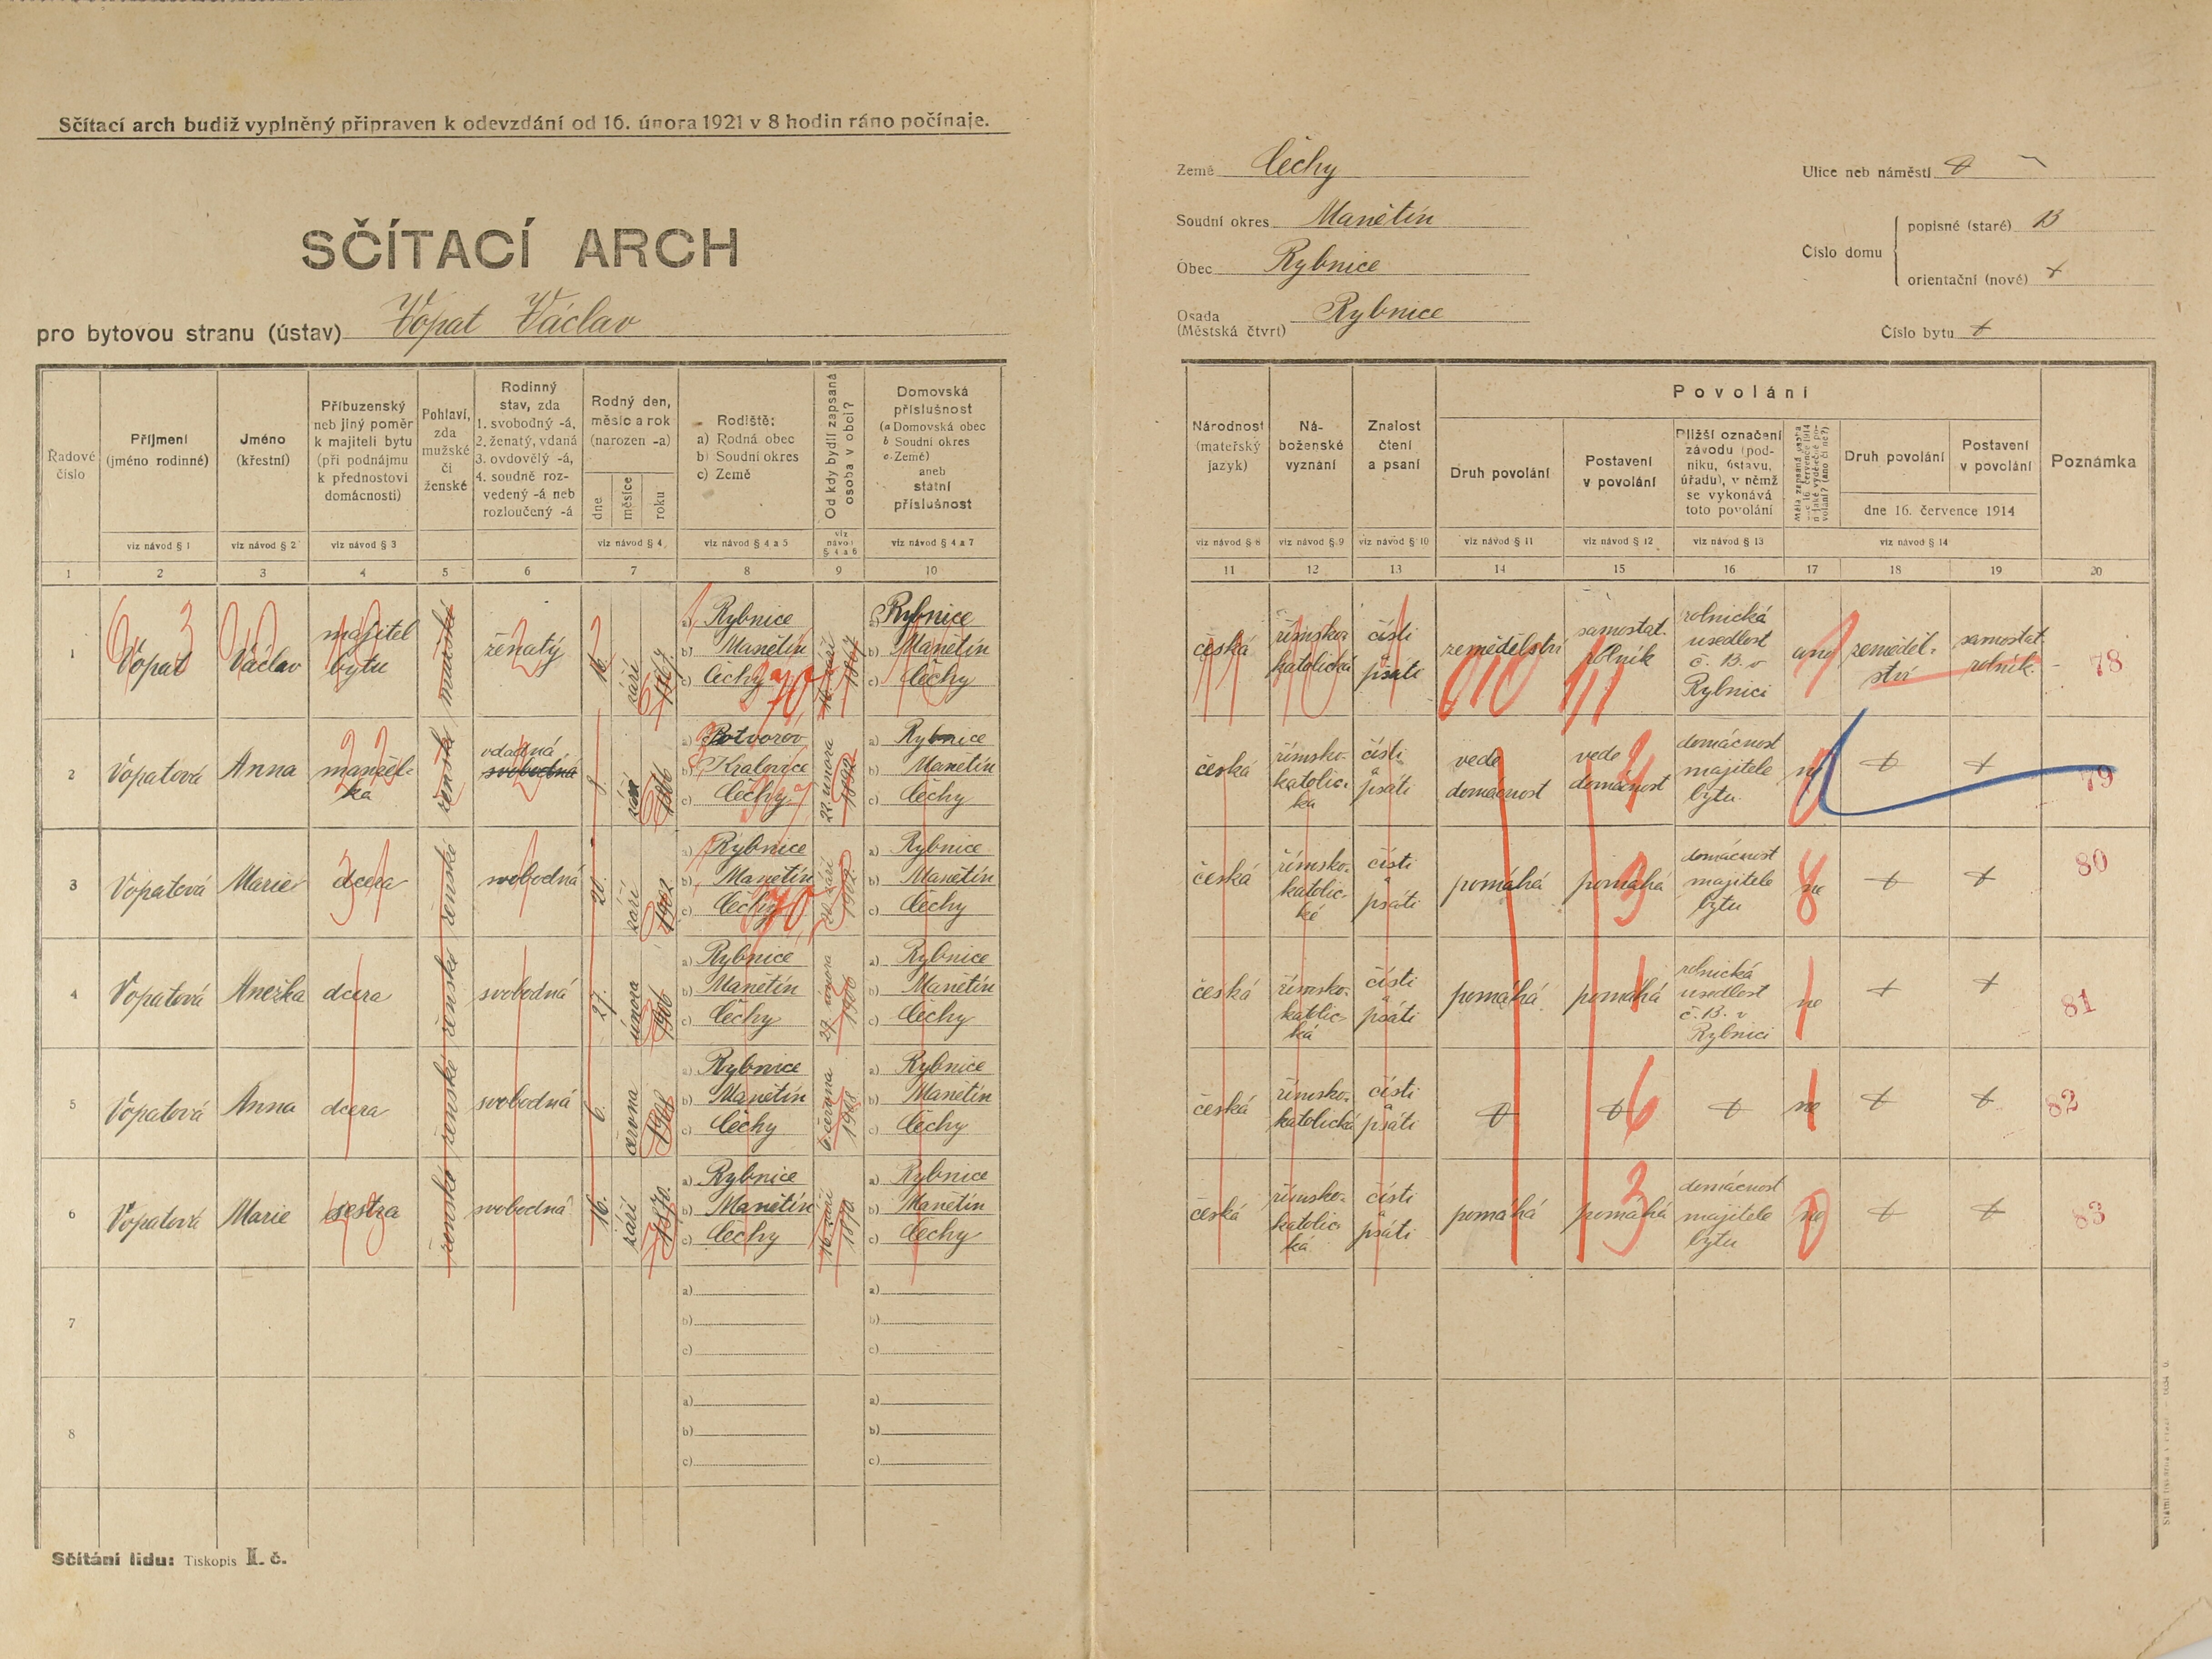 Sčítací arch budiž vyplněný připraven k odevzdání od 16. února 1921 v 8 hodin ráno počínaje.
SČÍTACÍ ARCH
pro bytovou stranu (ústav) Vopat Václav
Země Čechy
Soudní okres Manětín
Obec Rybnice
Osada Rybnice
(Městská čtvrť)
Ulice neb náměstí +
Číslo domu
popisné (staré) 13
orientační (nové) +
Číslo bytu +
Řadové číslo
Příjmení (jméno rodinné)
Jméno (křestní)
Příbuzenský neb jiný poměr k majiteli bytu (při podnájmu k přednostovi domácnosti)
Pohlaví, zda mužské či ženské
Rodinný stav, zda 1. svobodný -á, 2. ženatý, vdaná 3. ovdovělý -á, 4. soudně rozvedený -á neb rozloučený -á
Rodný den, měsíc a rok (narozen -a)
dne měsíce roku
Rodiště: a) Rodná obec b) Soudní okres c) Země
Od kdy bydlí zapsaná osoba v obci?
Domovská příslušnost (a Domovská obec b Soudní okres c Země) aneb státní příslušnost
Národnost (mateřský jazyk)
Náboženské vyznání
Znalost čtení a psaní
Povolání
Druh povolání
Postavení v povolání
Bližší označení závodu (podniku, ústavu, úřadu), v němž se vykonává toto povolání
Druh povolání
Postavení v povolání
dne 16. července 1914
Poznámka
viz návod § 1 viz návod § 2 viz návod § 3 viz návod § 4 viz návod § 4 a 5 viz návod § 4 a 6 viz návod § 4 a 7
viz návod § 8 viz návod § 9 viz návod § 10 viz návod § 11 viz návod § 12 viz návod § 13 viz návod § 14
1 2 3 4 5 6 7 8 9 10
11 12 13 14 15 16 17 18 19 20
1 Vopat Václav majitel bytu mužské ženatý 16. září 1867 a) Rybnice b) Manětín c) Čechy 16. září 1867 a) Rybnice b) Manětín c) Čechy
česká římsko-katolická čísti a psáti zemědělství samostat. rolník rolnická usedlost č. 13. v Rybnici ano zeměděl-ství samostat. rolník. 78
2 Vopatová Anna manžel-ka ženské vdaná svobodná 8. září a) Potvorov b) Kralovice c) Čechy 22. února 1892 a) Rybnice b) Manětín c) Čechy
česká římsko-katolic-ka čísti a psáti vede domácnost vede domácnost domácnost majitele bytu. ne + + 79
3 Vopatová Marie dcera ženské svobodná 20. září 1902 a) Rybnice b) Manětín c) Čechy 20. září 1902 a) Rybnice b) Manětín c) Čechy
česká římsko-katolic-ké čísti a psáti pomáhá pomáhá domácnost majitele bytu ne + + 80
4 Vopatová Anežka dcera ženské svobodná 27. února 1906 a) Rybnice b) Manětín c) Čechy 27. února 1906 a) Rybnice b) Manětín c) Čechy
česká římsko-katolic-ká čísti a psáti pomáhá pomáhá rolnická usedlost č. 13. v Rybnici ne + + 81
5 Vopatová Anna dcera ženské svobodná 6. června 1908 a) Rybnice b) Manětín c) Čechy 6. června 1908 a) Rybnice b) Manětín c) Čechy
česká římsko-katolická čísti a psáti + + + ne + + 82
6 Vopatová Marie sestra ženské svobodná 16. září 1870. a) Rybnice b) Manětín c) Čechy 16. září 1870 a) Rybnice b) Manětín c) Čechy
česká římsko-katolic-ká čísti a psáti pomáhá pomáhá domácnost majitele bytu ne + + 83
7 a) b) c) a) b) c)
8 a) b) c) a) b) c)
Sčítání lidu: Tiskopis II. č.